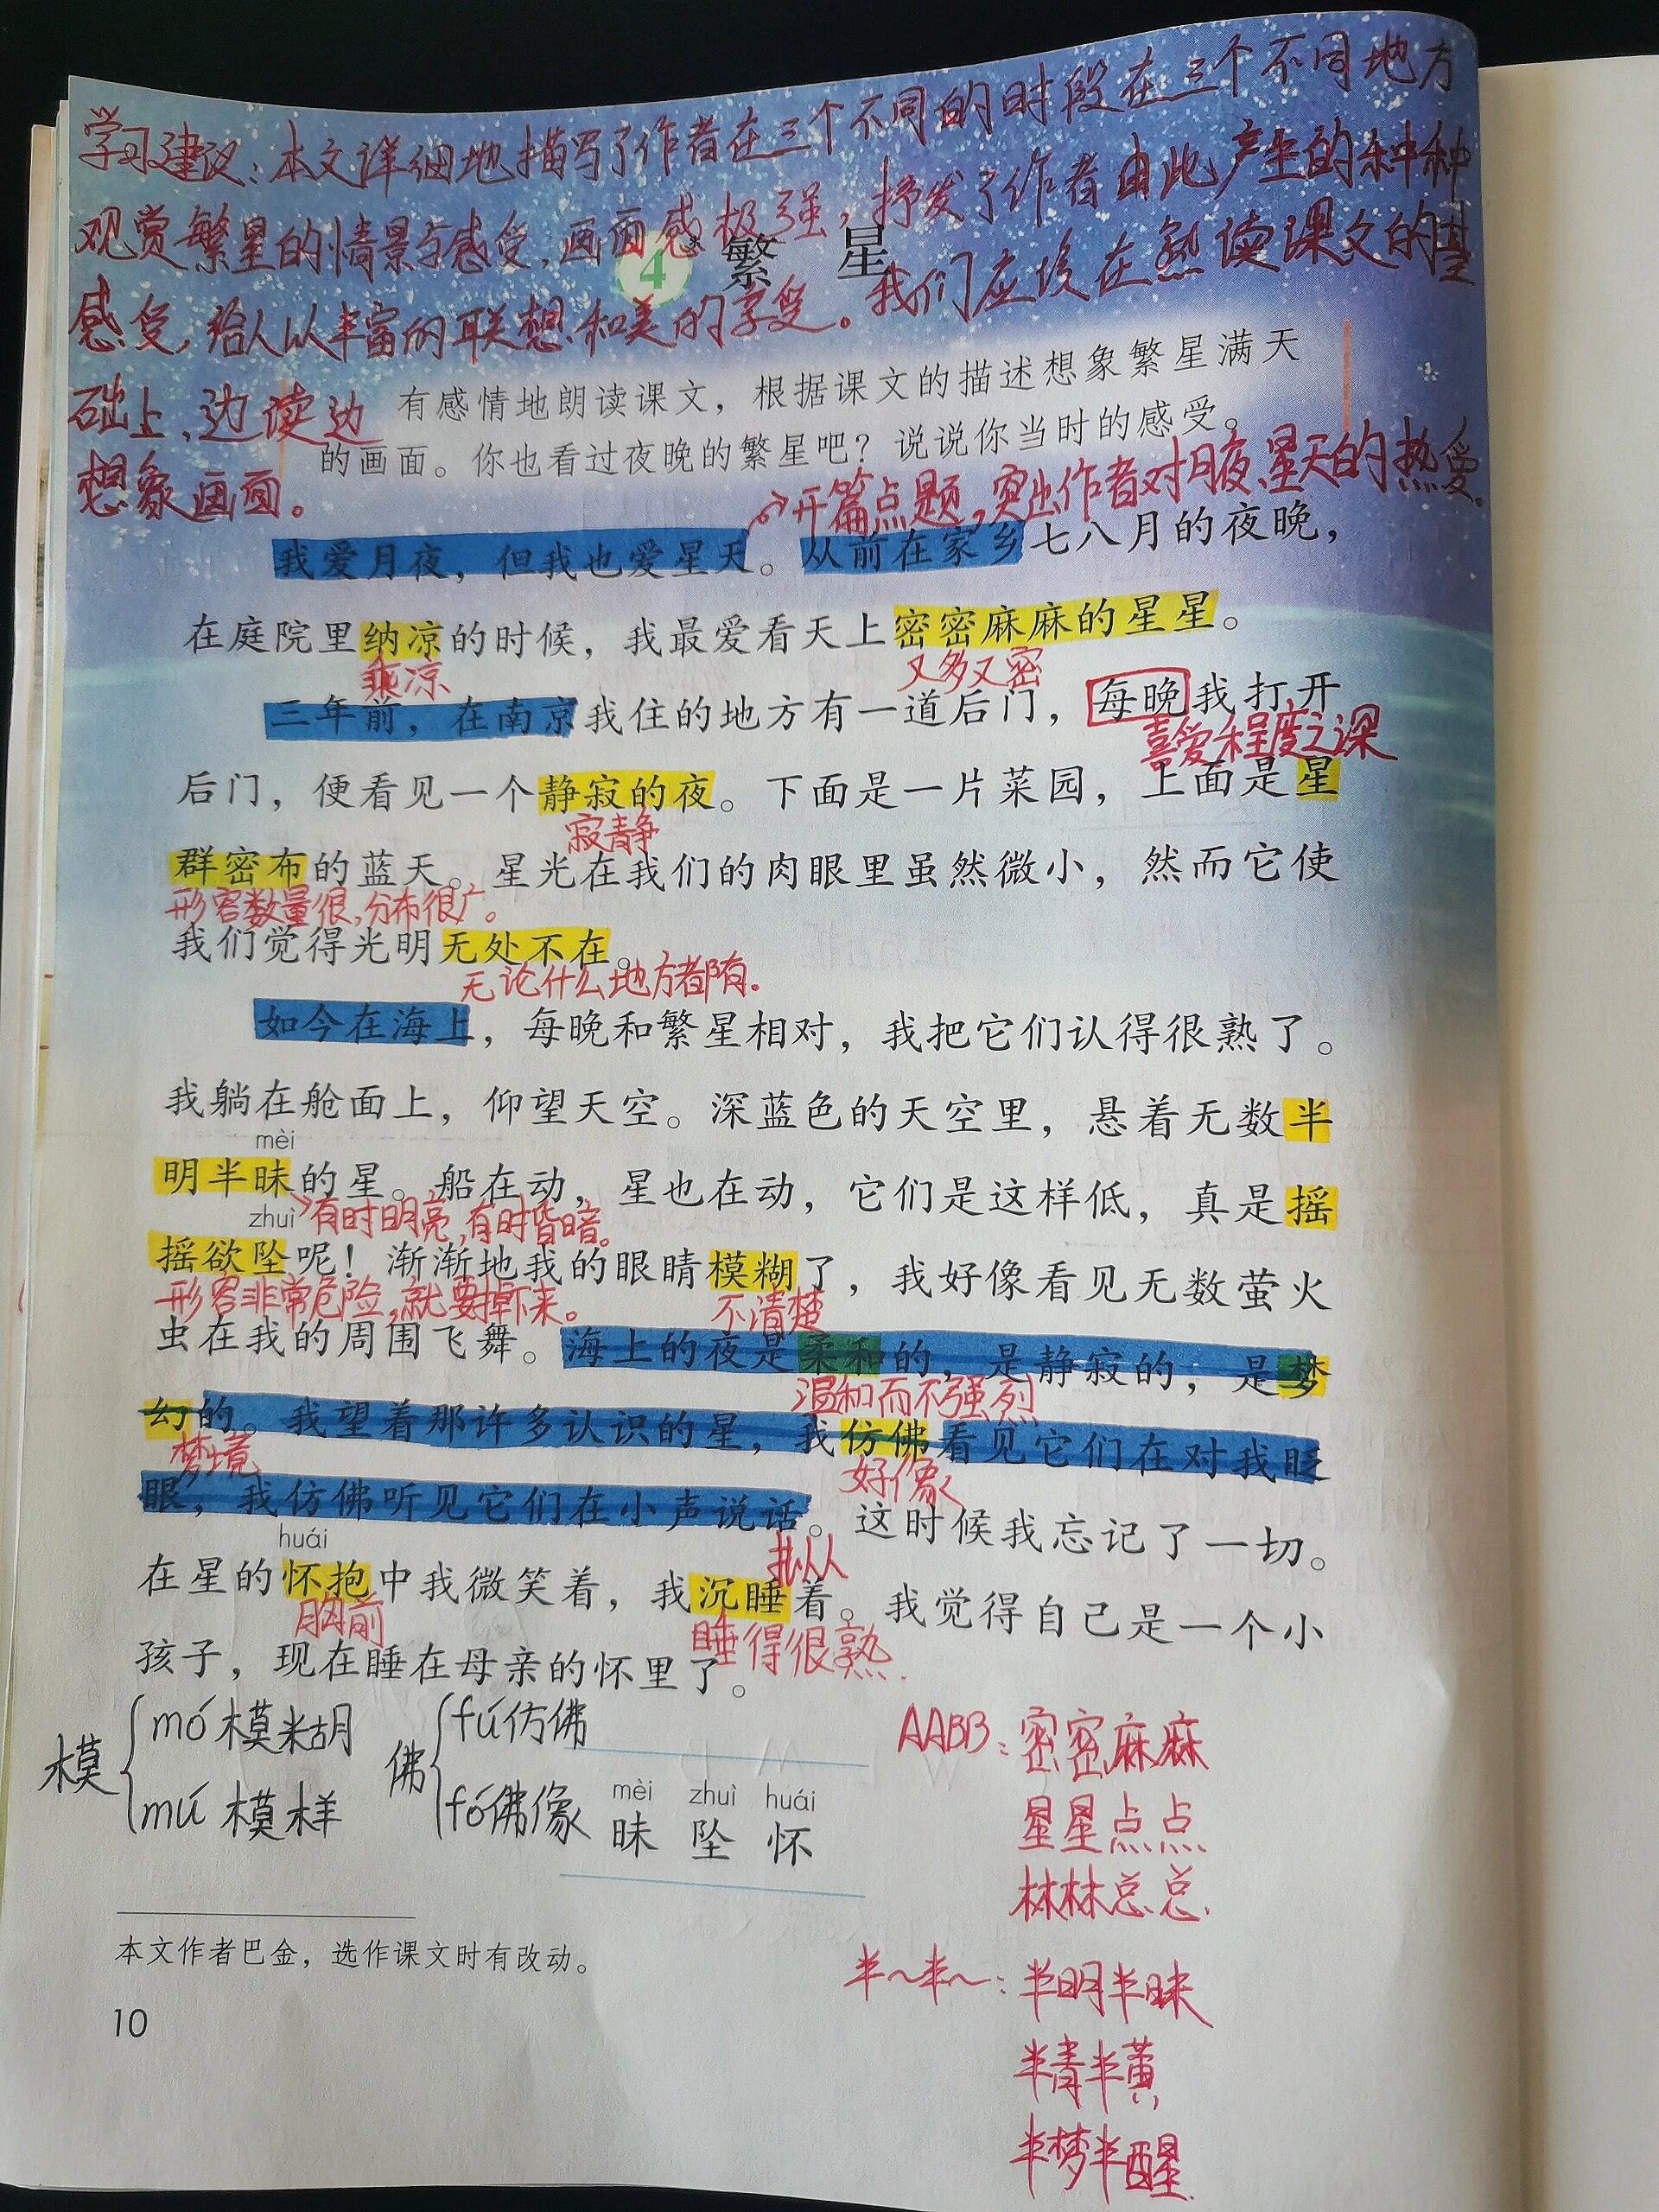 学习建议：本文详细地描写了作者在三个不同的时段在三个不同地方
观赏繁星的情景与感受，画面感极强，抒发了作者由此产生的种种
4* 繁 星
感受，给人以丰富的联想和美的享受。我们应该在熟读课文的基
础上，边读边
想象画面。
有感情地朗读课文，根据课文的描述想象繁星满天
的画面。你也看过夜晚的繁星吧？说说你当时的感受。
→开篇点题，突出作者对月夜、星天的热爱。
我爱月夜，但我也爱星天。从前在家乡七八月的夜晚，
在庭院里纳凉的时候，我最爱看天上密密麻麻的星星。
乘凉 又多又密
三年前，在南京我住的地方有一道后门，每晚我打开
喜爱程度之深
后门，便看见一个静寂的夜。下面是一片菜园，上面是星
寂静
群密布的蓝天。星光在我们的肉眼里虽然微小，然而它使
形容数量很，分布很广。
我们觉得光明无处不在。
无论什么地方都有。
如今在海上，每晚和繁星相对，我把它们认得很熟了。
我躺在舱面上，仰望天空。深蓝色的天空里，悬着无数半
mèi
明半昧的星。船在动，星也在动，它们是这样低，真是摇
→有时明亮，有时昏暗。
zhuì
摇欲坠呢！渐渐地我的眼睛模糊了，我好像看见无数萤火
形容非常危险，就要掉下来。 不清楚
虫在我的周围飞舞。海上的夜是柔和的，是静寂的，是梦
温和而不强烈
幻的。我望着那许多认识的星，我仿佛看见它们在对我眨
梦境 好像
眼，我仿佛听见它们在小声说话。这时候我忘记了一切。
拟人
huái
在星的怀抱中我微笑着，我沉睡着。我觉得自己是一个小
胸前 睡得很熟.
孩子，现在睡在母亲的怀里了。
模 mó 模糊
mú 模样
佛 fú 仿佛
fó 佛像
mèi zhuì huái
昧 坠 怀
AABB：密密麻麻
星星点点
林林总总.
半～半～：半明半昧
半青半黄
半梦半醒.
本文作者巴金，选作课文时有改动。
10